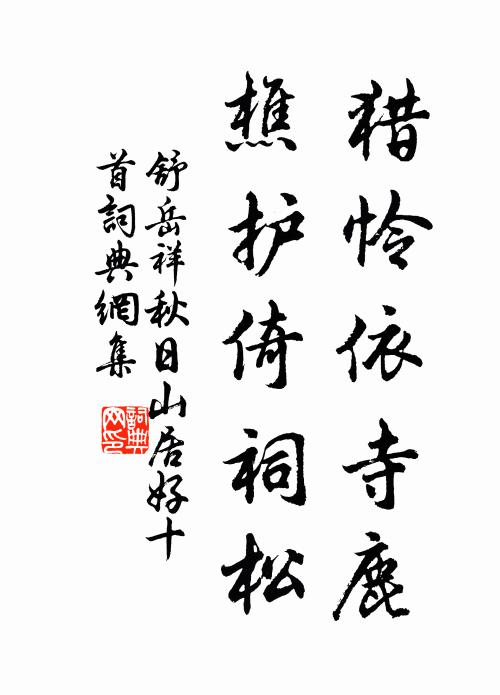 猎怜依寺鹿
樵护倚祠松
舒岳祥秋日山居好十
首詞典網集
詞典
网印